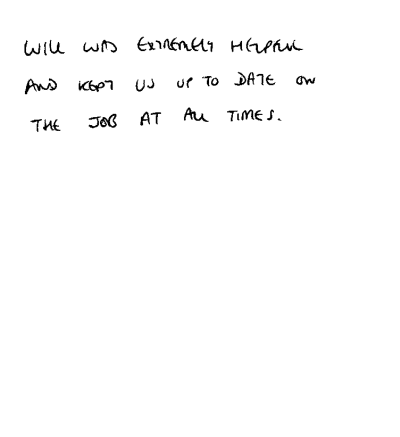 WILL WAS EXTREMELY HELPFUL
AND KEPT US UP TO DATE ON
THE JOB AT ALL TIMES.